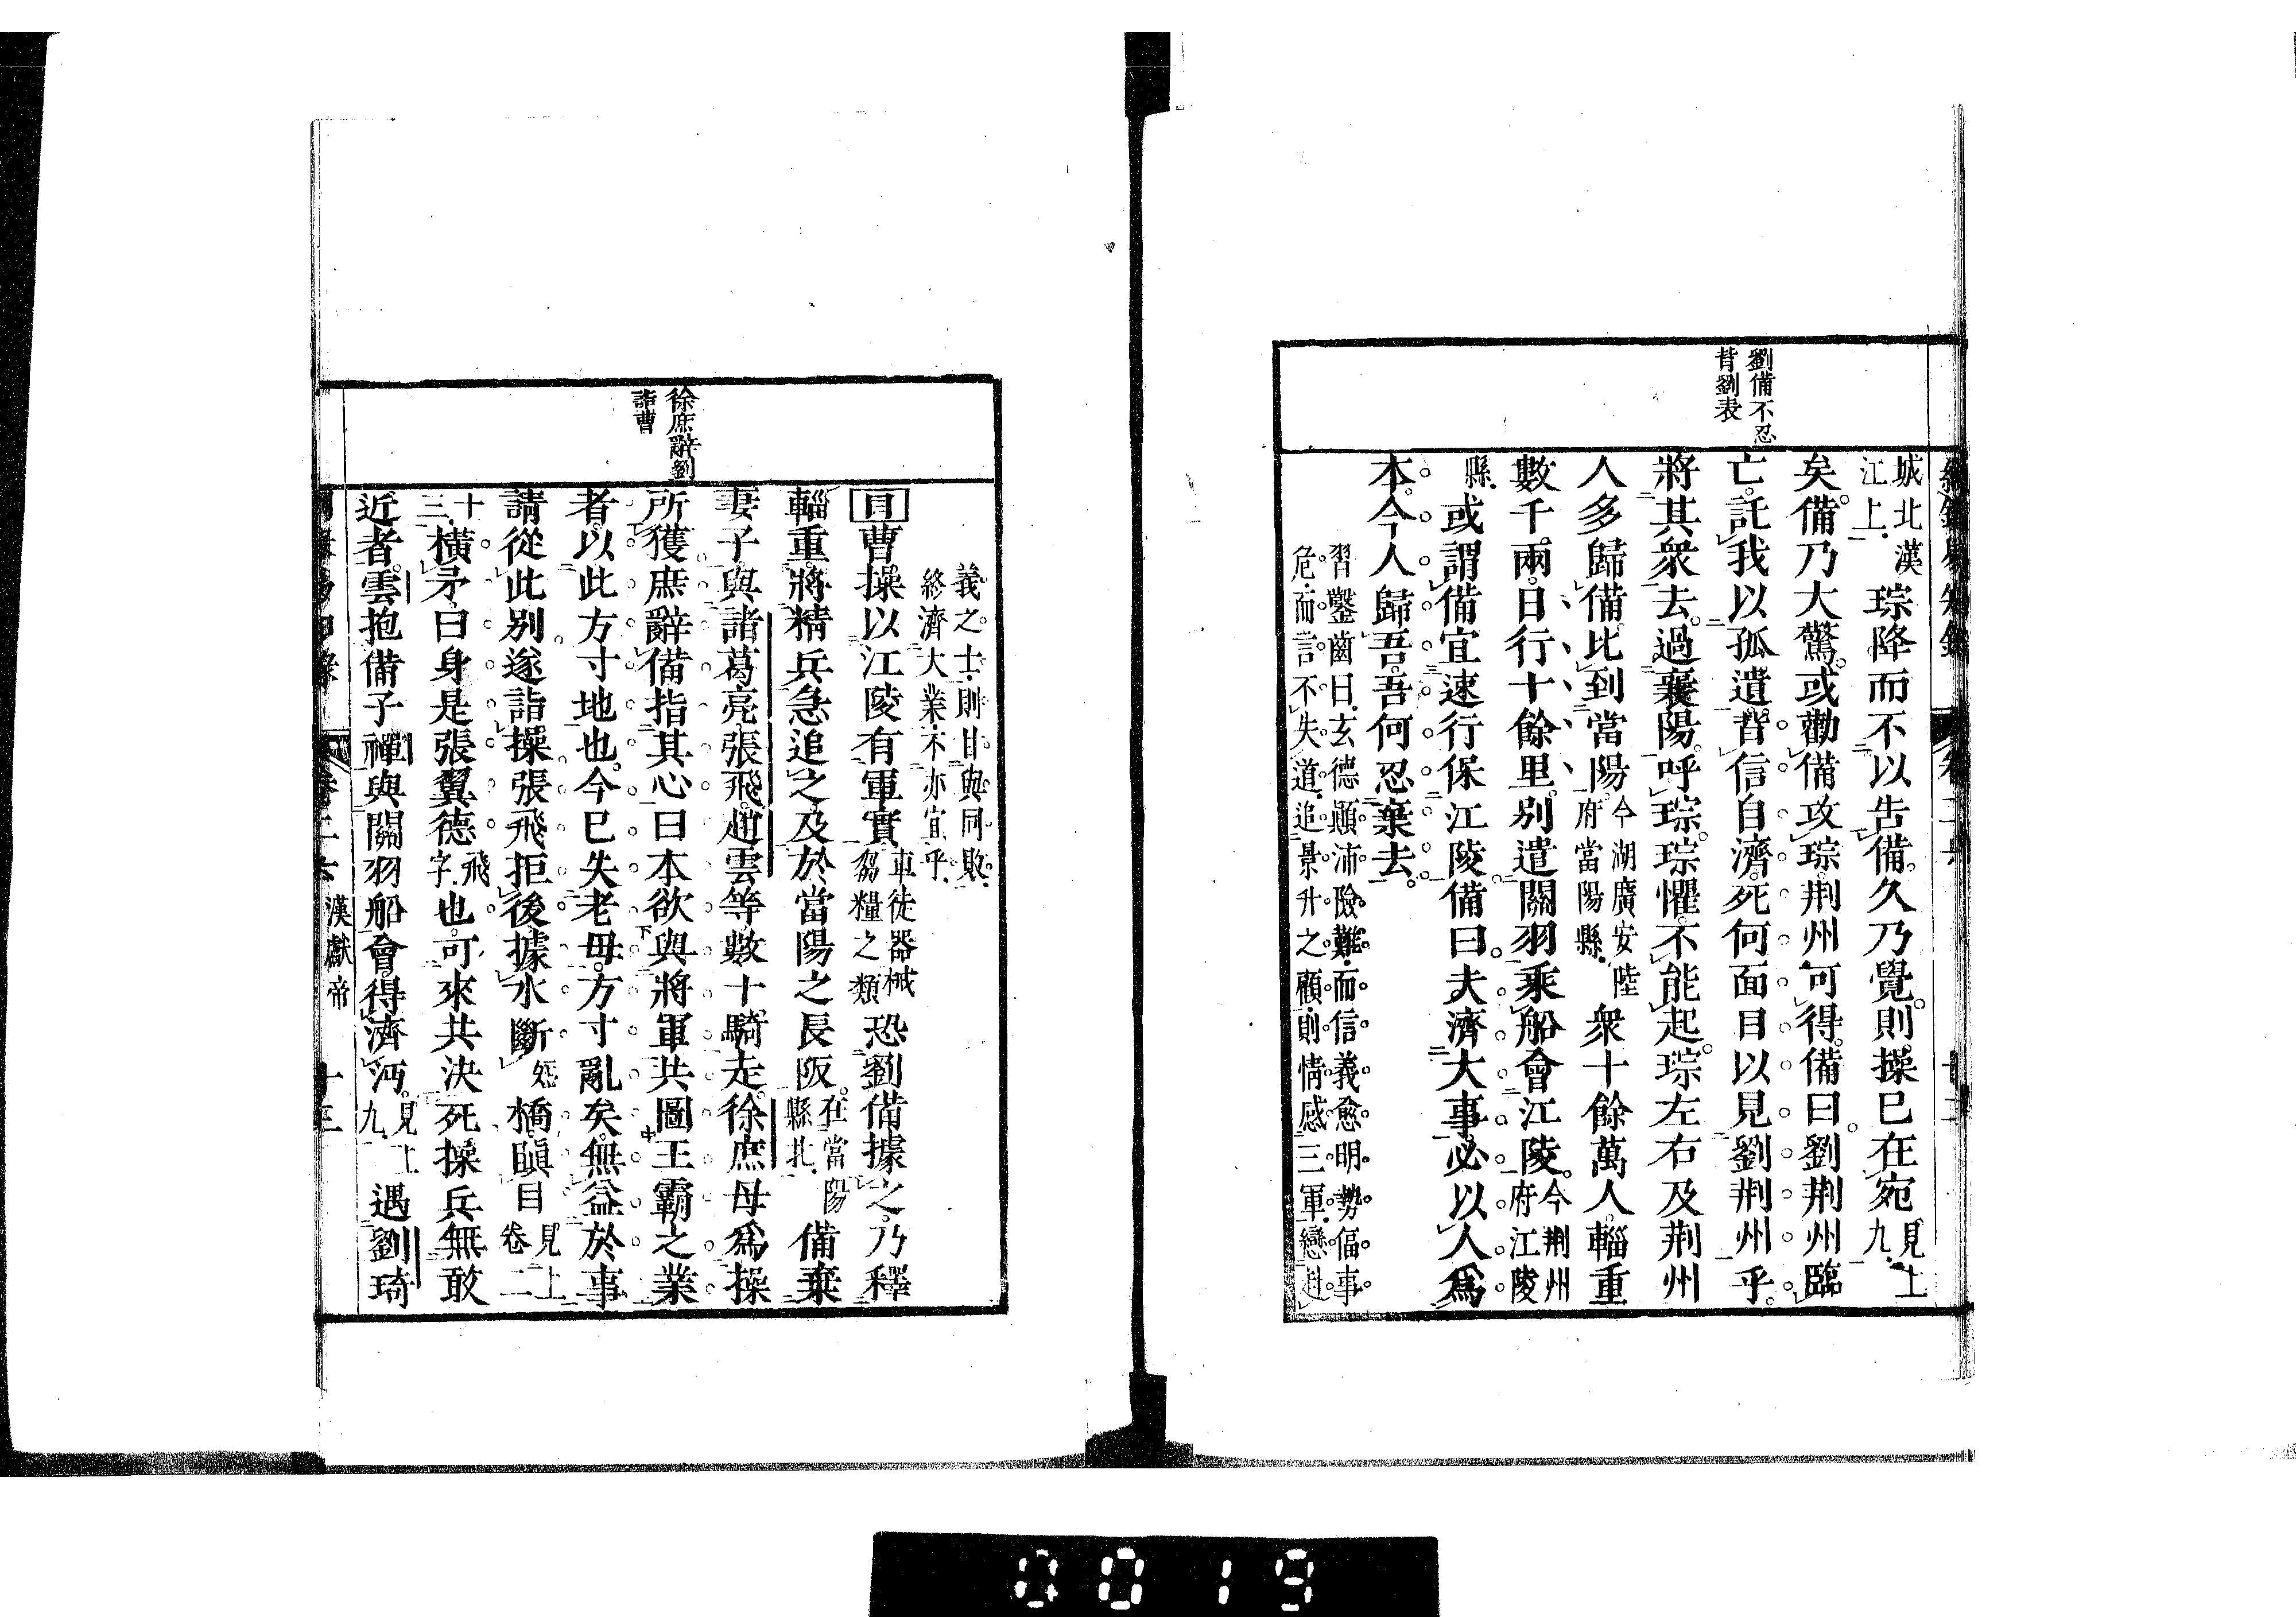 劉備不忍
背劉表
城北漢
江上
琮降而不以告備久乃覺則操已在宛
見上
九
矣備乃大驚或勸備攻琮荆州可得備曰劉荆州臨
亡託我以孤遺背信自濟死何面目以見劉荆州乎
將其衆去過襄陽呼琮琮懼不能起琮左右及荆州
人多歸備比到當陽
今湖廣安陸
府當陽縣
衆十餘萬人輜重
數千兩日行十餘里別遣關羽乘船會江陵
今荆州
府江陵
縣
或謂備宜速行保江陵備曰夫濟大事必以人爲
本今人歸吾吾何忍棄去
習鑿齒曰玄德顚沛險難而信義愈明勢偪事
危而言不失道追景升之顧則情感三軍戀赴
義之士則甘與同敗
終濟大業不亦宜乎
徐庶辭劉
詣曹
目曹操以江陵有軍實
車徒器械
芻糧之類
恐劉備據之乃釋
輜重將精兵急追之及於當陽之長阪
在當陽
縣北
備棄
妻子與諸葛亮張飛趙雲等數十騎走徐庶母爲操
所獲庶辭備指其心曰本欲與將軍共圖王霸之業
者以此方寸地也今已失老母方寸亂矣無益於事
請從此別遂詣操張飛拒後據水斷橋瞋目
見上
卷二
十
三
橫矛曰身是張翼德
飛
字
也可來共決死操兵無敢
近者雲抱備子禪與關羽船會得濟沔
見上
九
遇劉琦
漢獻帝